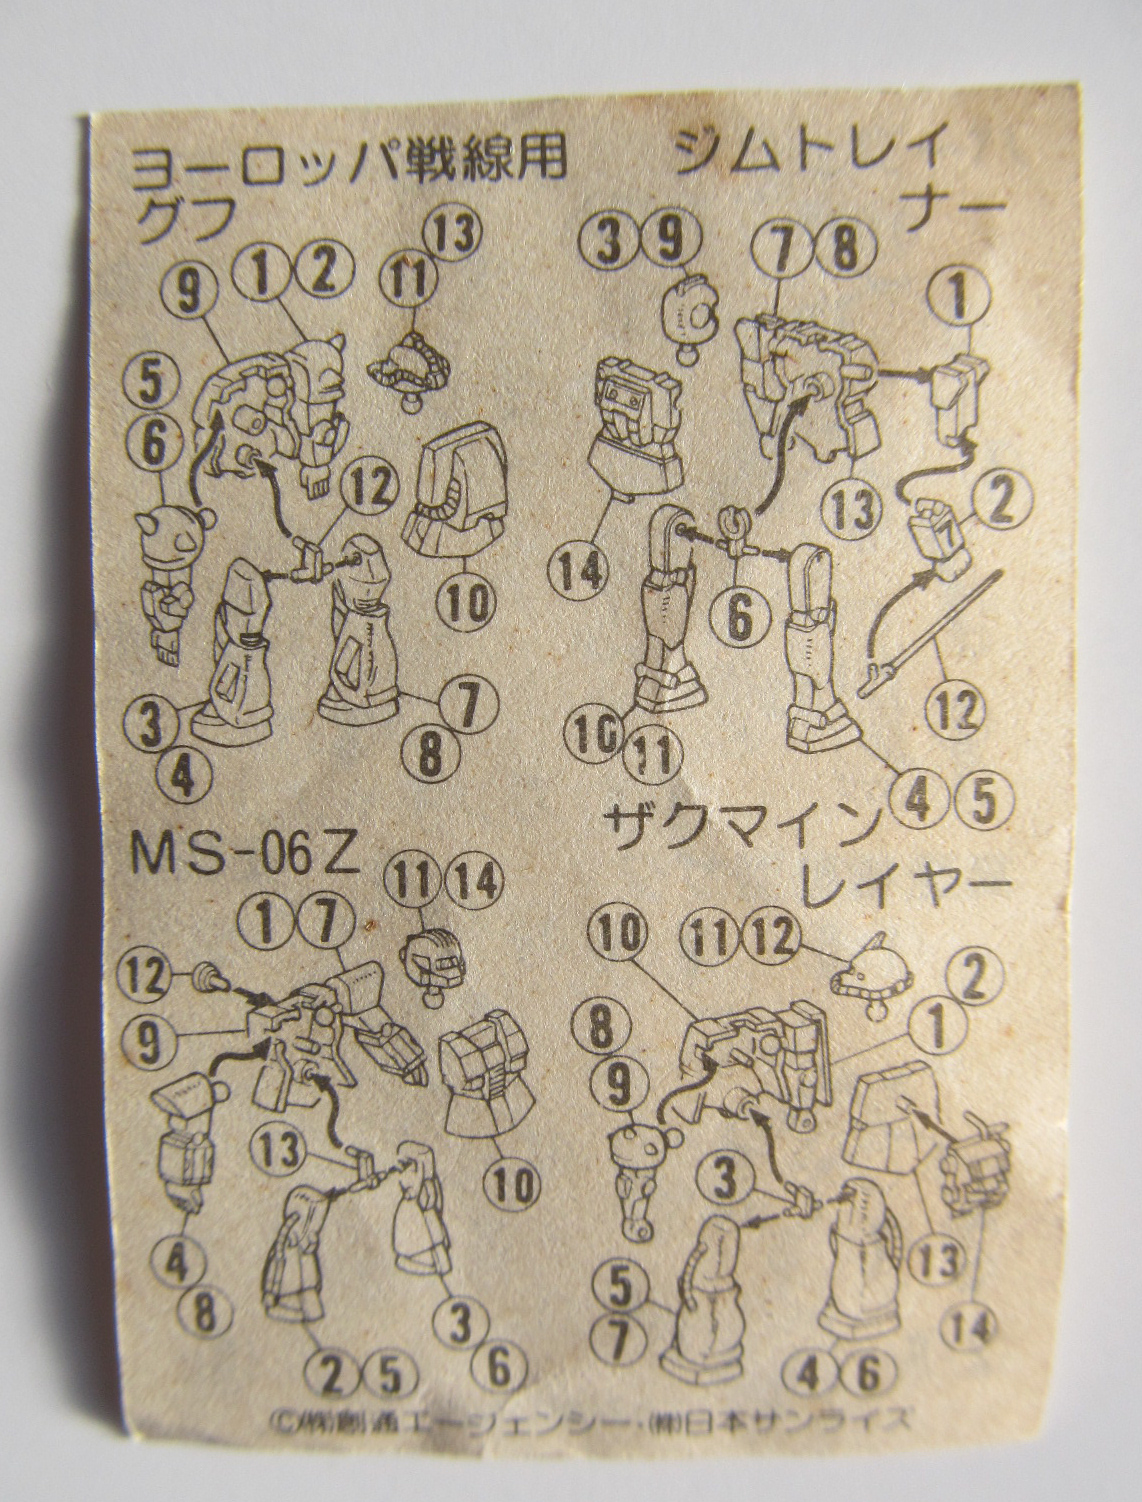 ヨーロッパ戦線用
グフ
⑬
⑨ ① ② ⑪
⑤
⑥
⑫
⑩
③
④
⑦
⑧
ジムトレイ
ナー
③ ⑨ ⑦ ⑧
①
②
⑬
⑭
⑥
⑫
⑩ ⑪
④ ⑤
MS-06Z
⑪ ⑭
① ⑦
⑫
⑨
⑬
⑩
④
⑧
③
⑥
② ⑤
ザクマイン
レイヤー
⑩ ⑪ ⑫
②
①
⑧
⑨
③
⑬
⑤
⑦
⑭
④ ⑥
©㈱創通エージェンシー・㈱日本サンライズ